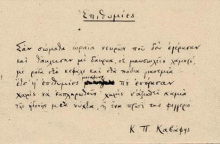 Ἐπιθυμίες
Σὰν σώματα ὡραῖα νεκρῶν ποὺ δὲν ἐγέρασαν
καὶ τἄκλεισαν, μὲ δάκρυα, σὲ μαυσωλεῖο λαμπρό,
μὲ ρόδα στὸ κεφάλι καὶ στὰ πόδια γιασεμιά —
ἔτσ' ἡ ἐπιθυμίες μοιάζουν ποὺ ἐπέρασαν
χωρὶς νὰ ἐκπληρωθοῦν· χωρὶς ν' ἀξιωθεῖ καμιὰ
τῆς ἡδονῆς μιὰ νύχτα, ἢ ἕνα πρωΐ της φεγγερό.
Κ Π Καβάφης